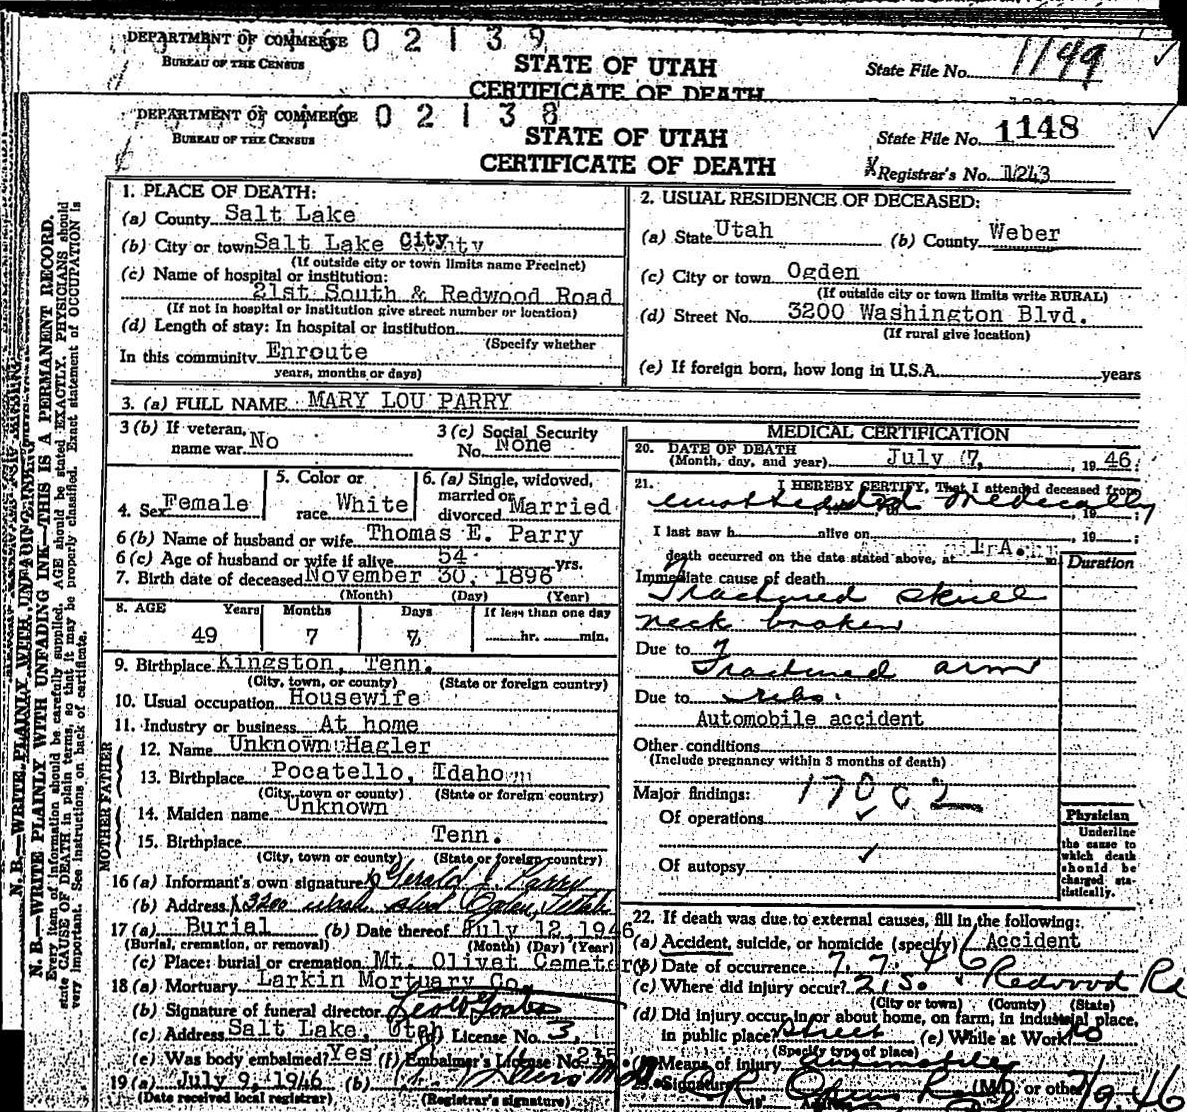 DEPARTMENT OF COMMERCE 02139
BUREAU OF THE CENSUS
STATE OF UTAH
CERTIFICATE OF DEATH
State File No. 1149
DEPARTMENT OF COMMERCE 02138
BUREAU OF THE CENSUS
STATE OF UTAH
CERTIFICATE OF DEATH
State File No. 1148
Registrar's No. 1243
N. B.—WRITE PLAINLY WITH UNFADING INK—THIS IS A PERMANENT RECORD.
Every item of information should be carefully supplied. AGE should be stated EXACTLY. PHYSICIANS should
state CAUSE OF DEATH in plain terms, so that it may be properly classified. Exact statement of OCCUPATION is
very important. See instructions on back of certificate.
1. PLACE OF DEATH:
(a) County Salt Lake
(b) City or town Salt Lake City
(If outside city or town limits name Precinct)
(c) Name of hospital or institution:
21st South & Redwood Road
(If not in hospital or institution give street number or location)
(d) Length of stay: In hospital or institution
(Specify whether
In this community Enroute
years, months or days)
2. USUAL RESIDENCE OF DECEASED:
(a) State Utah (b) County Weber
(c) City or town Ogden
(If outside city or town limits write RURAL)
(d) Street No. 3200 Washington Blvd.
(If rural give location)
(e) If foreign born, how long in U.S.A. years
3. (a) FULL NAME MARY LOU PARRY
3 (b) If veteran,
name war No
3 (c) Social Security
No. None
4. Sex Female
5. Color or
race White
6. (a) Single, widowed,
married or
divorced Married
6 (b) Name of husband or wife Thomas E. Parry
6 (c) Age of husband or wife if alive 54 yrs.
7. Birth date of deceased November 30, 1896
(Month) (Day) (Year)
8. AGE Years Months Days If less than one day
49 7 7 hr. min.
9. Birthplace Kingston, Tenn.
(City, town, or county) (State or foreign country)
10. Usual occupation Housewife
11. Industry or business At home
FATHER
12. Name Unknown Hagler
13. Birthplace Pocatello, Idaho
(City, town or county) (State or foreign country)
MOTHER
14. Maiden name Unknown
15. Birthplace Tenn.
(City, town or county) (State or foreign country)
16 (a) Informant's own signature Gerald J. Parry
(b) Address 3200 Wash. Blvd Ogden, Utah
17 (a) Burial (b) Date thereof July 12, 1946
(Burial, cremation, or removal) (Month) (Day) (Year)
(c) Place: burial or cremation Mt. Olivet Cemetery
18 (a) Mortuary Larkin Mortuary Co.
(b) Signature of funeral director
(c) Address Salt Lake, Utah (d) License No. 3
(e) Was body embalmed? Yes (f) Embalmer's License No.
19 (a) July 9, 1946 (b)
(Date received local registrar) (Registrar's signature)
MEDICAL CERTIFICATION
20. DATE OF DEATH
(Month, day, and year) July 7, 1946
21. I HEREBY CERTIFY, That I attended deceased from
medically
, 19 ;
I last saw h alive on , 19 ;
death occurred on the date stated above, at m
Duration
Immediate cause of death
Fractured skull
neck broken
Due to
Fractured arm
Due to ribs.
Automobile accident
Other conditions
(Include pregnancy within 3 months of death)
Major findings: 170 c 2
Of operations
Of autopsy
Physician
Underline
the cause to
which death
should be
charged sta-
tistically.
22. If death was due to external causes, fill in the following:
(a) Accident, suicide, or homicide (specify) Accident
(b) Date of occurrence 7. 7. 46
(c) Where did injury occur? 21 S. & Redwood Rd
(City or town) (County) (State)
(d) Did injury occur in or about home, on farm, in industrial place,
in public place? Street (e) While at Work? No
(Specify type of place)
Means of injury Automobile
Signature (M.D. or other) 7/9 46